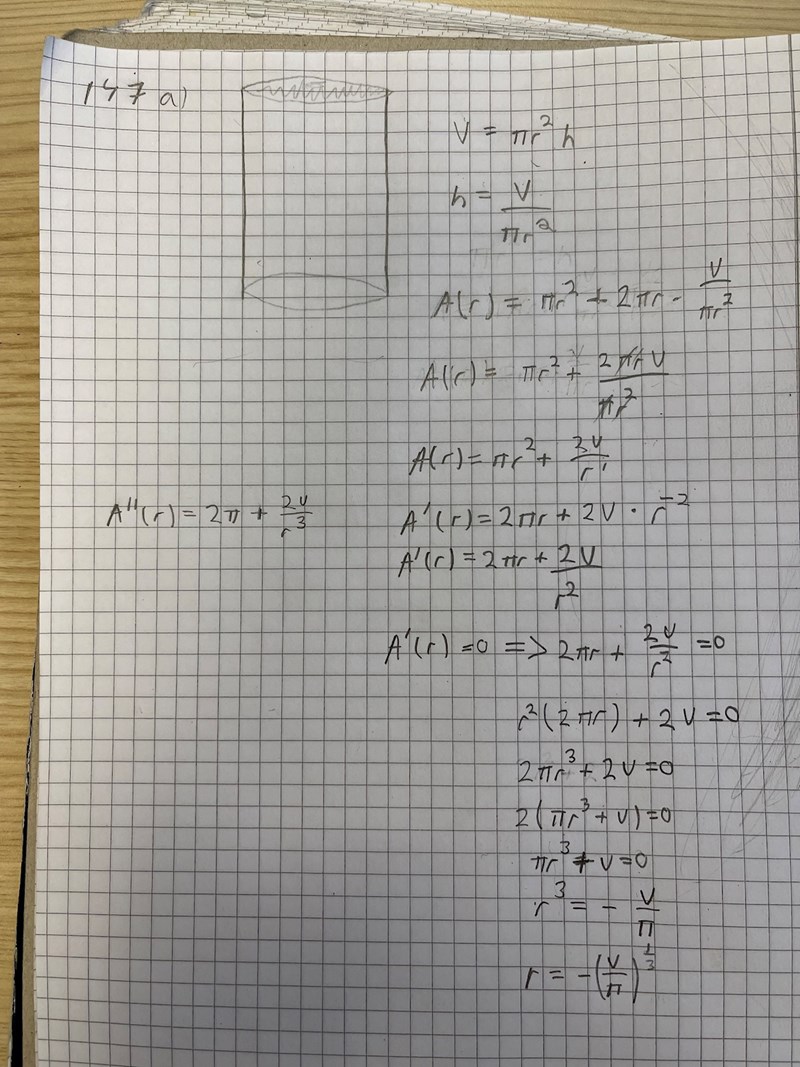 147 a)
V = πr² h
h = V/(πr²)
A(r) = πr² + 2πr · V/(πr²)
A(r) = πr² + (2πrV)/(πr²)
A(r) = πr² + 2V/r¹
A''(r) = 2π + 2V/r³
A'(r) = 2πr + 2V · r⁻²
A'(r) = 2πr + 2V/r²
A'(r) = 0 => 2πr + 2V/r² = 0
r²(2πr) + 2V = 0
2πr³ + 2V = 0
2(πr³ + V) = 0
πr³ + V = 0
r³ = - V/π
r = -(V/π)^(1/3)